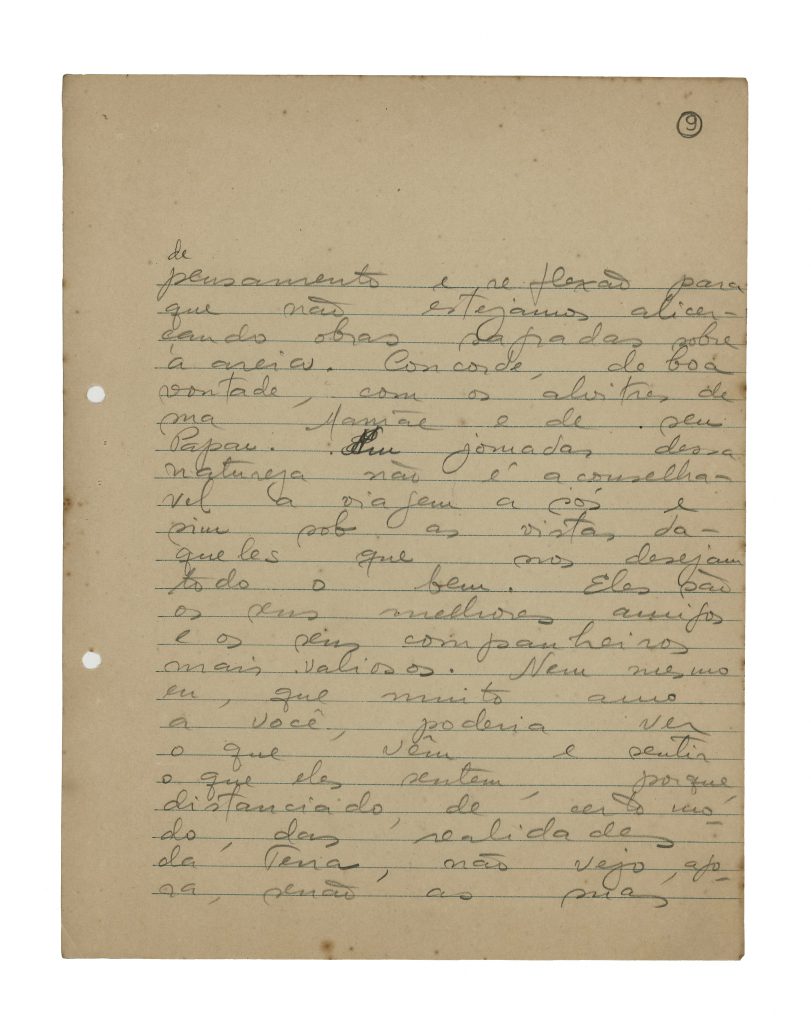 9
de
pensamento e reflexão para
que não estejamos alicer-
çando obras sagradas sobre
a areia. Concorde, de boa
vontade, com os alvitres de
sua Mamãe e de seu
Papai. Em jornadas dessa
natureza não é aconselha-
vel a viagem a sós e
sim sob as vistas da-
queles que nos desejam
todo o bem. Eles são
os seus melhores amigos
e os seus companheiros
mais valiosos. Nem mesmo
eu, que muito amo
a você, poderia ver
o que vêm e sentir
o que eles sentem, porque,
distanciado, de certo mo-
do, das realidades
da Terra, não vejo, ago-
ra, senão as suas